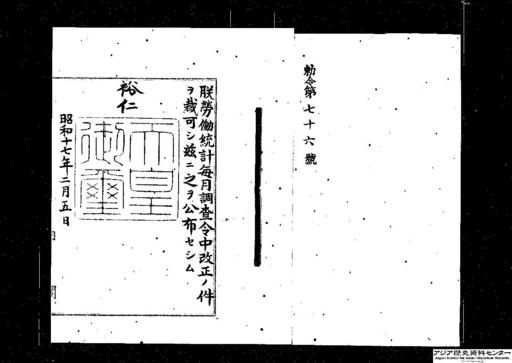 勅令第七十六號
朕勞働統計毎月調査令中改正ノ件
ヲ裁可シ茲ニ之ヲ公布セシム
裕仁
天皇御璽
昭和十七年二月五日
内閣
アジア歴史資料センター
Japan Center for Asian Historical Records